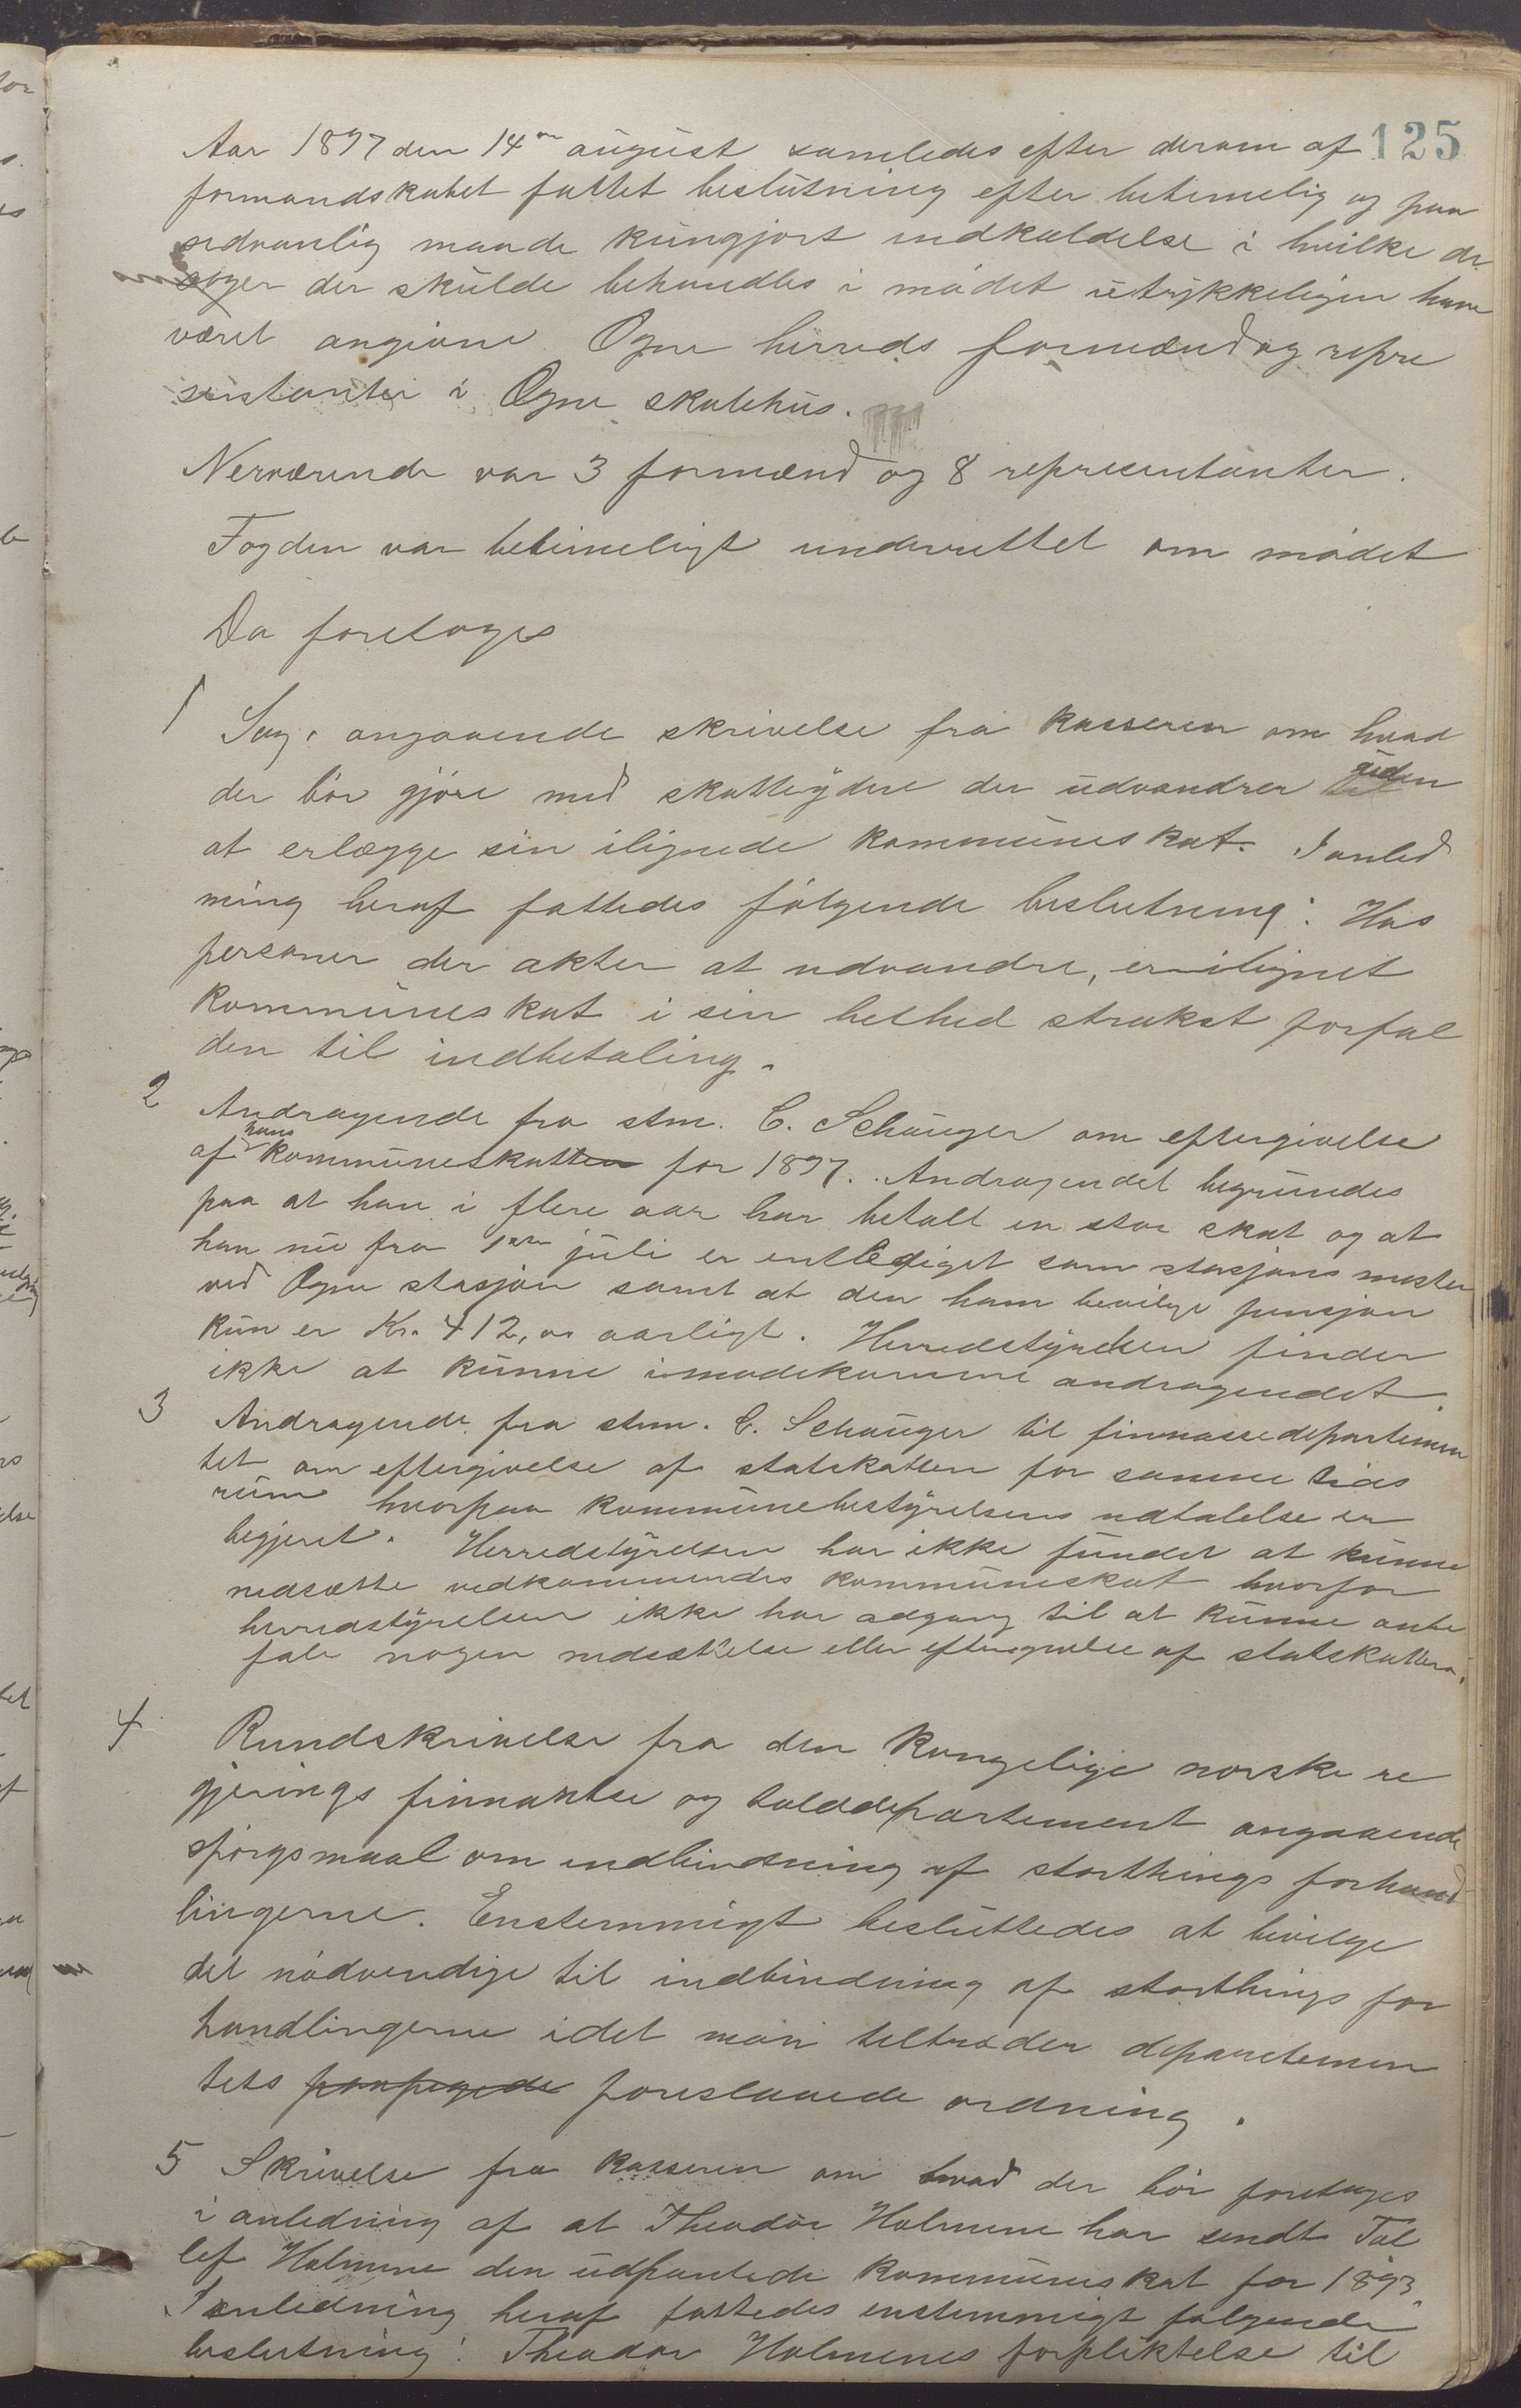 125
Aar 1897 den 14de august samledes efter derom af
formandskabet fattet beslutning efter betimelig og paa
sedvanlig maade kungjort indkaldelse i hvilke de
sager der skulde behandles i mødet utrykkeligen have
været angivne Ogne herreds formænd og repre
sentanter i Ogne skolehus.
Nerværende var 3 formænd og 8 representanter.
Fogden var betimeligt underrettet om mødet
Da foretoges
1 Sag. angaaende skrivelse fra kasseren om hvad
der bør gjøre med skatteydere der udvandrer uden
at erlægge sin ilignede kommuneskat. I anled
ning heraf fattedes følgende beslutning: Hos
personer der akter at udvandre, er ilignet
kommuneskat i sin helhed strakst forfal
den til indbetaling.
2 Andragende fra stm. C. Schanger om eftergivelse
af hans kommuneskatten for 1897. Andragendet begrundes
paa at han i flere aar har betalt en stor skat og at
han nu fra 1ste juli er entlediget som stasjons mester
ved Ogne stasjon samt at den ham bevilge pensjon
kun er Kr. 412,00 aarligt. Herredstyrelsen finder
ikke at kunne imødekomme andragendet.
3 Andragende fra stm. C. Schanger til finnassedepartemen
tet om eftergivelse af statskatten for samme tids
rum hvorpaa kommunebestyrelsens udtalelse er
begjeret. Herredstyrelsen har ikke fundet at kunne
nedsætte vedkommendes kommuneskat hvorfor
herredstyrelsen ikke har adgang til at kunne anbe
fale nogen nedsættelse eller eftergivelse af statskatten.
4 Rundskrivelse fra den kongelige norske re
gjerings finnantse og tolddepartement angaaende
spørgsmaal om indbindning af storthings forhand
lingerne. Enstemmigt besluttedes at bevilge
det nødvendige til indbindning af storthings for
handlingerne idet man tiltræder departemen
tets paapegede foreslaaede ordning.
5 Skrivelse fra kasseren om hvad der bør foretages
i anledning af at Theodor Holmene har sendt Tol
lef Holmene den udpantede kommuneskat for 1893
I anledning heraf fattedes enstemmigt følgende
beslutning: Theodor Holmenes forpliktelse til